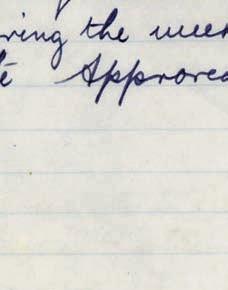 ring the week
te Approved